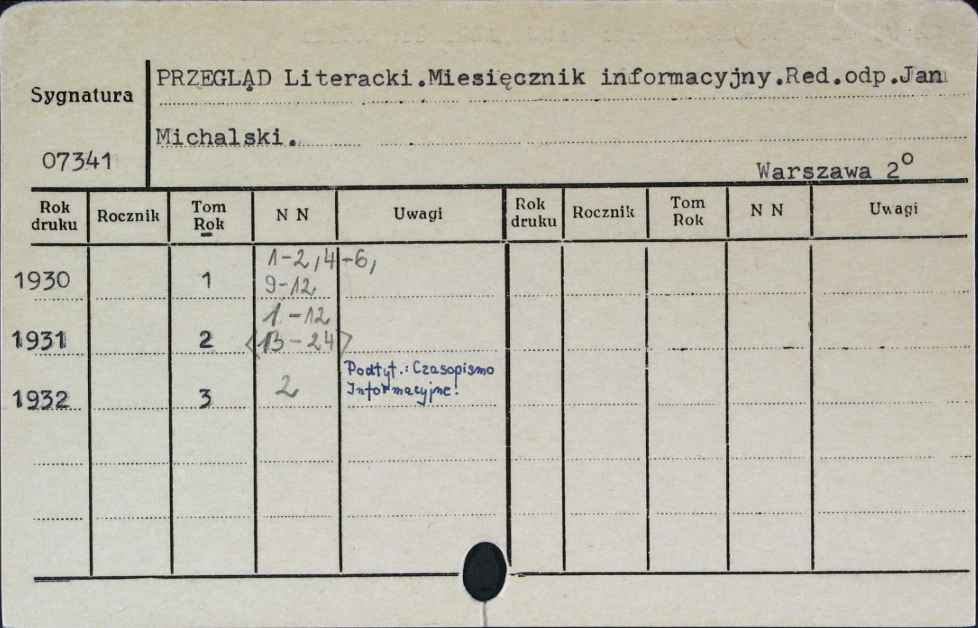 PRZEGLĄD Literacki.Miesięcznik informacyjny.Red.odp.Jan
Sygnatura
Michalski.
07341
Warszawa 2o
Rok druku Rocznik Tom Rok N N Uwagi Rok druku Rocznik Tom Rok N N Uwagi
1-2,4-6,
1930 1 9-12
1.-12
1931 2 <13-24>
Podtyt.: Czasopismo
1932 3 2 Informacyjne.